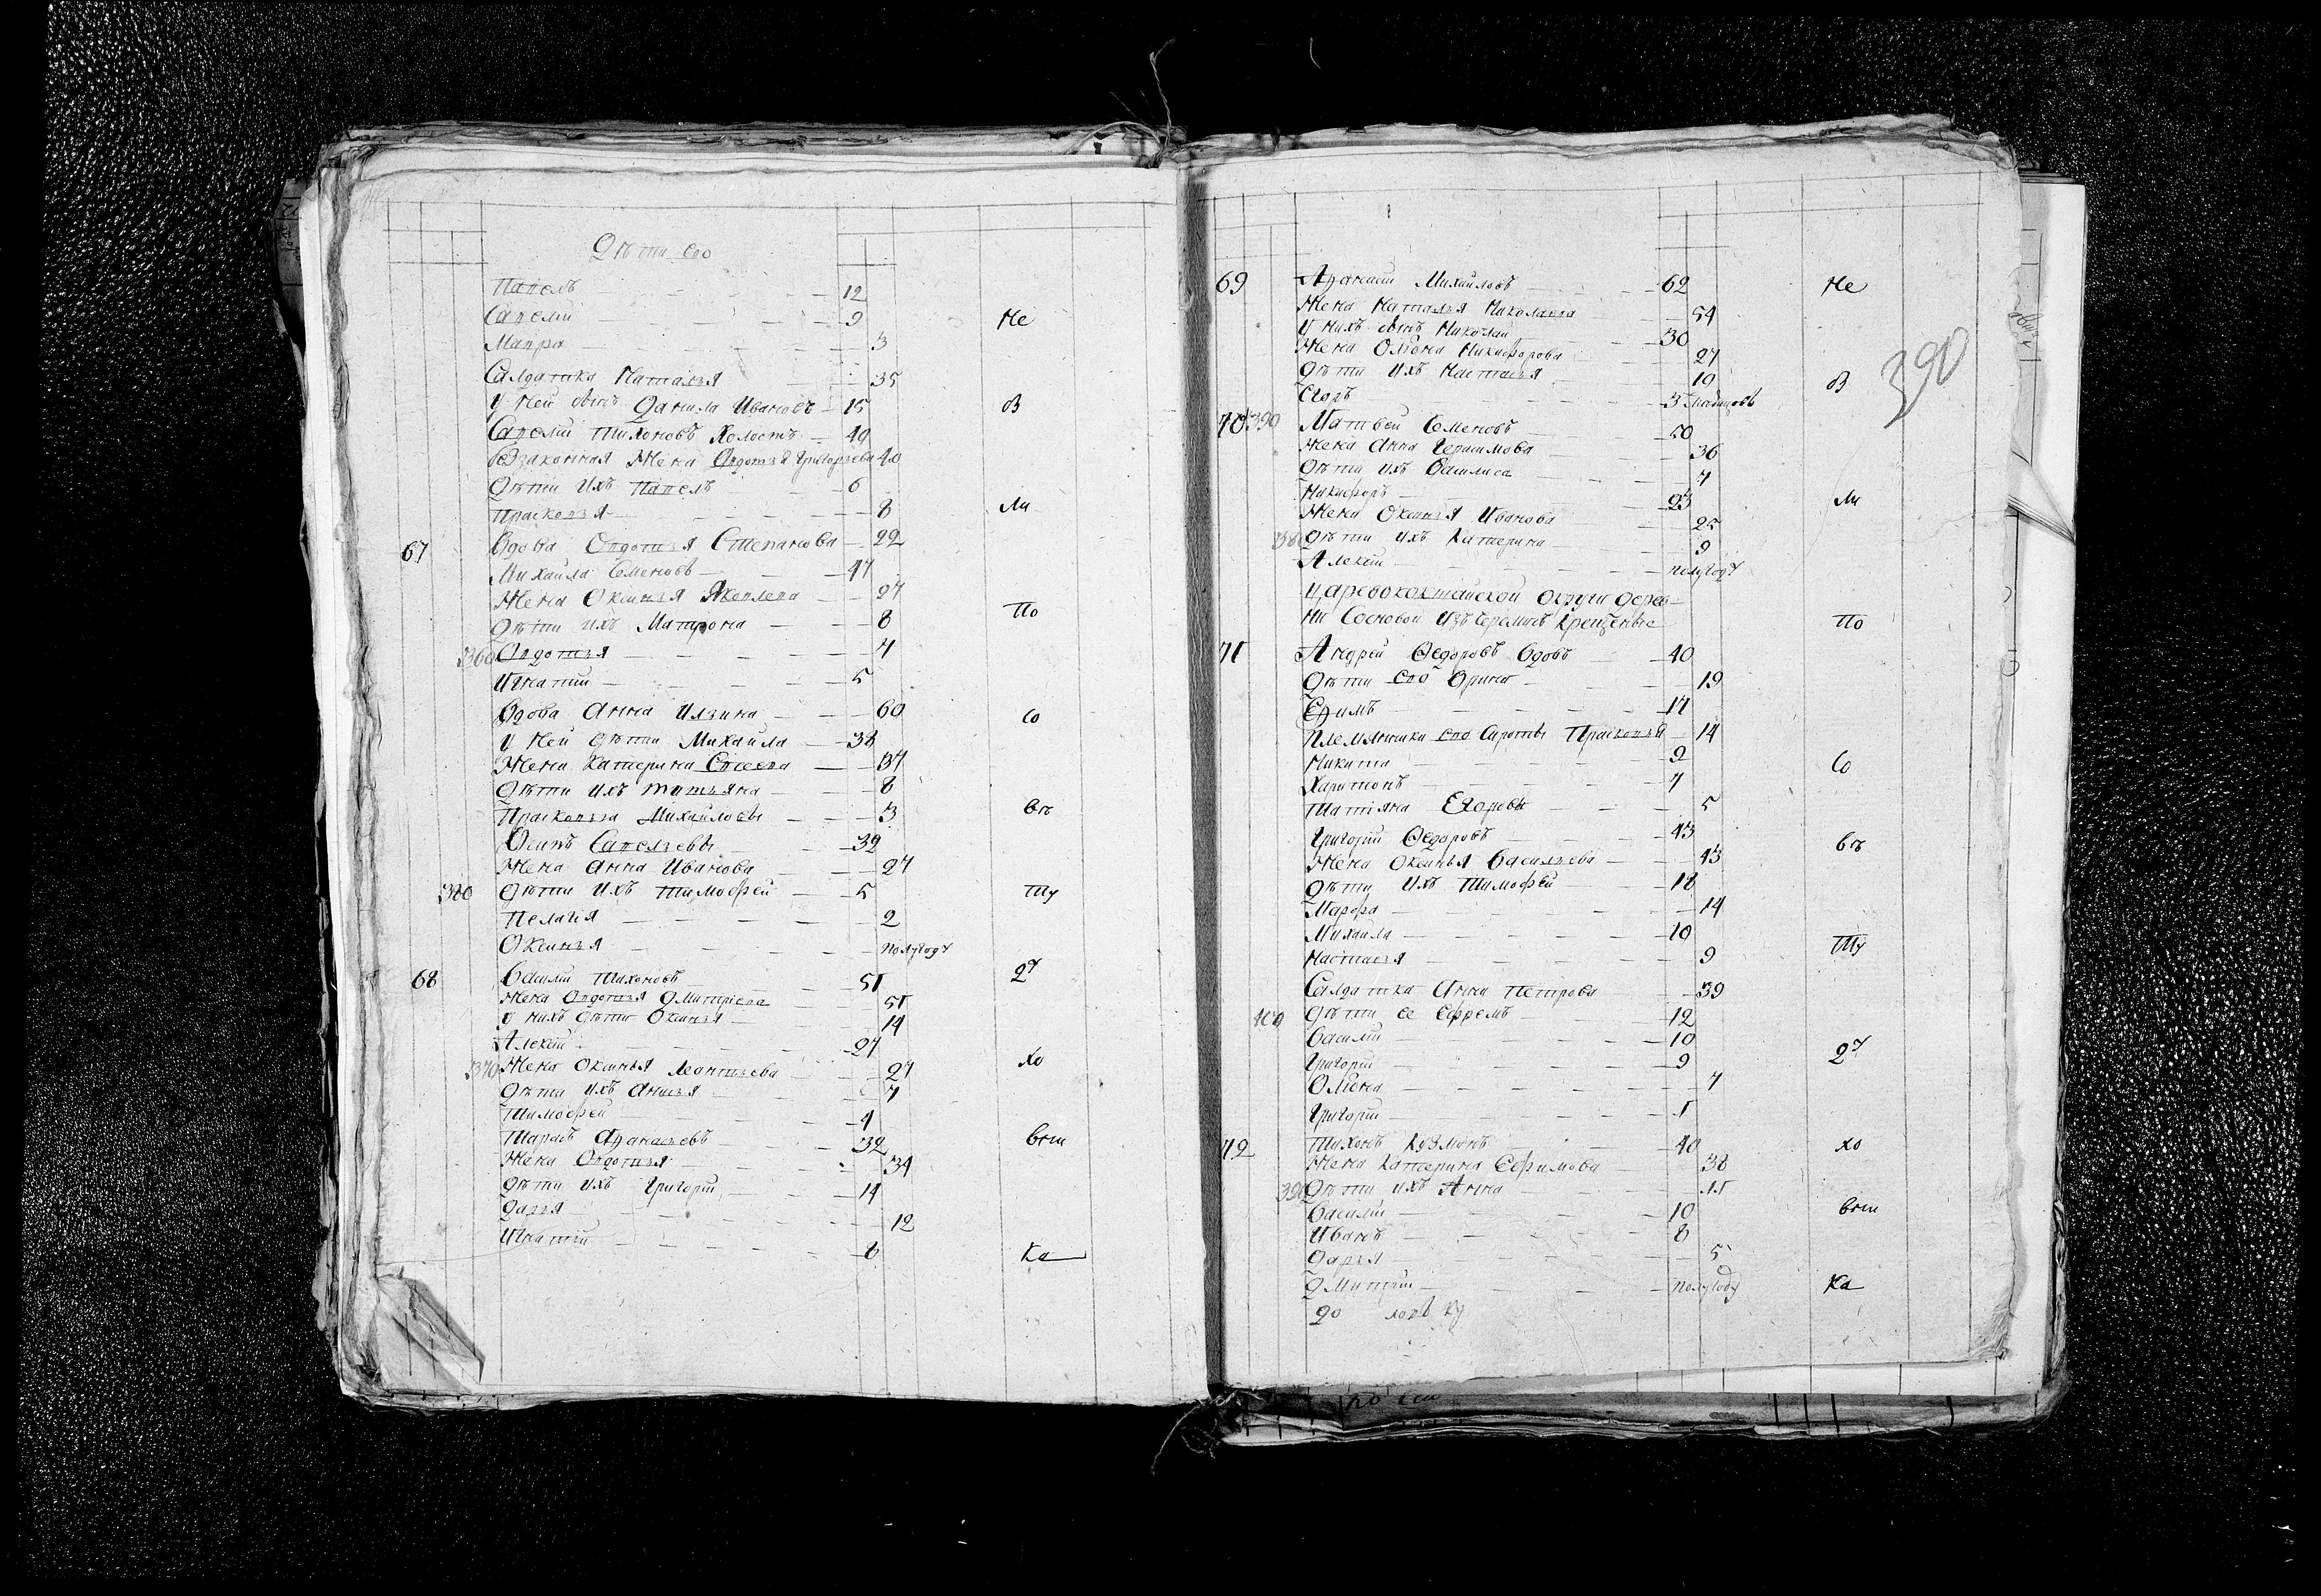 Дѣти ево
Павелъ 12
Савелій 9 Не
Мавра 3
Салдатка Наталья 35
У ней сынъ Данила Ивановъ 15 ов
Савелій Тихоновъ холостъ 49
Безаконная жена Овдотья Григорьева 40
Дѣти ихъ Павелъ 6
Прасковья 8 ли
67 Вдова Овдотья Степанова 22
Михайла Семеновъ 47
Жена Оксинья Яковлева 27
Дѣти ихъ Матрона 8 По
360 Овдотья 7
Игнатий 5
Вдова Анна Ильина 60 Со
У ней дѣти Михайла 38
Жена Катерина Евсеева 37
Дѣти ихъ Татьяна 8
Прасковья Михайловы 3 въ
Осипъ Савельевъ 32
Жена Анна Иванова 27
380 Дѣти ихъ Тимофей 5 ту
Пелагия 2
Оксинья полугоду
68 Василий Тихоновъ 51 2у
Жена Овдотья Дмитриева 51
У нихъ дѣти Оксинья 14
Алексѣй 27
370 Жена Оксинья Леонтьева 27 хо
Дѣти ихъ Анисья 7
Тимофей 4
Тарасъ Аѳанасьевъ 32 вѣт
Жена Овдотья 34
Дѣти ихъ Григорий 14
Дарья 12
Игнатий 8 Ка
390
69 Аѳанасий Михайловъ 62 Не
Жена Наталья Николаева 54
У нихъ сынъ Николай 30
Жена Олиона Никифорова 27
Дѣти ихъ Настасья 10 ов
Егоръ 3 месяцовъ
70 390 Матвей Семеновъ 50
Жена Анна Герасимова 36
Дѣти ихъ Василиса 7
Никифоръ 23 ли
Жена Оксинья Иванова 25
380 Дѣти ихъ Катерина 9
Алексѣй полугоду
Царевококшайской округи дерев-
ни Сосновой изъ черемисъ крещеные По
71 Андрей Ѳедоровъ вдовъ 40
Дѣти ево Орина 19
Ефимъ 17
Племянники ево сироты Прасковья 14
Никита 9 Со
Харитонъ 7
Татіяна Егоровы 5
Григорий Ѳедоровъ 43 въ
Жена Оксинья Васильева 43
Дѣти ихъ Тимофей 18
Марфа 14
Михаила 10 ту
Настасья 9
Салдатка Анна Петрова 39
400 Дѣти ее Ефремъ 12
Василий 10
Григорий 9 2у
Олиона 7
Григорий 1
72 Тихонъ Кузминъ 40 хо
Жена Катерина Ефимова 38
390 Дѣти ихъ Анна 11
Василий 10 вѣт
Иванъ 8
Дарья 5
Дмитрій полугоду Ка